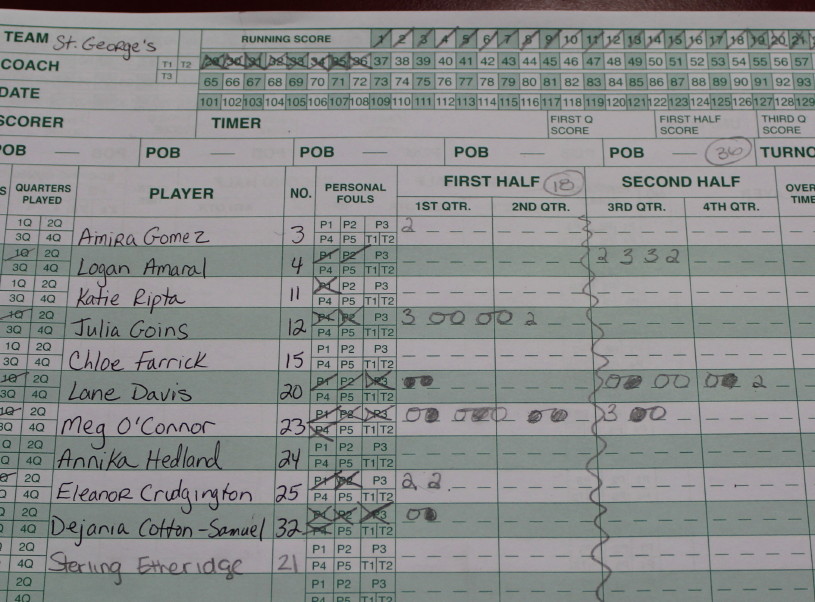 TEAM St. George's RUNNING SCORE 1 2 3 4 5 6 7 8 9 10 11 12 13 14 15 16 17 18 19 20 21
COACH T1 T2 29 30 31 32 33 34 35 36 37 38 39 40 41 42 43 44 45 46 47 48 49 50 51 52 53 54 55 56 57
T3 65 66 67 68 69 70 71 72 73 74 75 76 77 78 79 80 81 82 83 84 85 86 87 88 89 90 91 92 93
DATE 101 102 103 104 105 106 107 108 109 110 111 112 113 114 115 116 117 118 119 120 121 122 123 124 125 126 127 128 129
SCORER TIMER FIRST Q SCORE FIRST HALF SCORE THIRD Q SCORE
POB — POB — POB — POB — POB — 36 TURNO
QUARTERS PLAYED PLAYER NO. PERSONAL FOULS FIRST HALF 18 SECOND HALF OVER TIME
1ST QTR. 2ND QTR. 3RD QTR. 4TH QTR.
1Q 2Q P1 P2 P3 2
3Q 4Q Amira Gomez 3 P4 P5 T1 T2
1Q 2Q P1 P2 P3 2 3 3 2
3Q 4Q Logan Amaral 4 P4 P5 T1 T2
1Q 2Q P1 P2 P3
3Q 4Q Katie Ripta 11 P4 P5 T1 T2
1Q 2Q P1 P2 P3 3 00 00 2
3Q 4Q Julia Goins 12 P4 P5 T1 T2
1Q 2Q P1 P2 P3
3Q 4Q Chloe Farrick 15 P4 P5 T1 T2
1Q 2Q P1 P2 P3 00 00 00 00 2
3Q 4Q Lane Davis 20 P4 P5 T1 T2
1Q 2Q P1 P2 P3 00 000 00 3 00
3Q 4Q Meg O'Connor 23 P4 P5 T1 T2
Q 2Q P1 P2 P3
Q 4Q Annika Hedland 24 P4 P5 T1 T2
Q 2Q P1 P2 P3 2 2
Q 4Q Eleanor Crudgington 25 P4 P5 T1 T2
Q 2Q P1 P2 P3 00
Q 4Q Dejania Cotton-Samuel 32 P4 P5 T1 T2
2Q P1 P2 P3
4Q Sterling Etheridge 21 P4 P5 T1 T2
2Q P1 P2 P3
4Q P4 P5 T1 T2